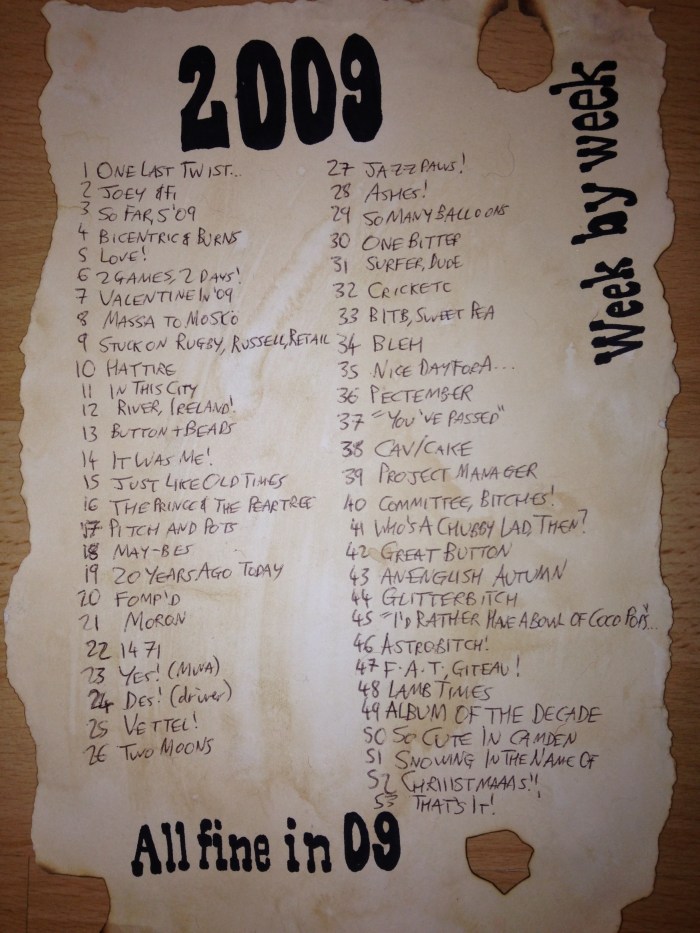 2009
Week by week
1 ONE LAST TWIST...
2 JOEY & FI
3 SO FAR, S'09
4 BICENTRIC & BURNS
5 LOVE!
6 2 GAMES, 2 DAYS!
7 VALENTINE IN '09
8 MASSA TO MOSKO
9 STUCK ON RUGBY, RUSSELL, RETAIL
10 HATTIRE
11 IN THIS CITY
12 RIVER, IRELAND!
13 BUTTON + BEADS
14 IT WAS ME!
15 JUST LIKE OLD TIMES
16 THE PRINCE & THE PEARTREE
17 PITCH AND POTS
18 MAY-BES
19 20 YEARS AGO TODAY
20 FOMP'D
21 MORON
22 1471
23 YES! (MUNA)
24 DES! (driver)
25 VETTEL!
26 TWO MOONS
27 JAZZ PAWS!
28 ASHES!
29 SO MANY BALLOONS
30 ONE BITTER
31 SURFER, DUDE
32 CRICKETC
33 BITB, SWEET PEA
34 BLEH
35 NICE DAY FOR A...
36 PECTEMBER
37 "YOU'VE PASSED"
38 CAV/CAKE
39 PROJECT MANAGER
40 COMMITTEE, BITCHES!
41 WHO'S A CHUBBY LAD, THEN?
42 GREAT BUTTON
43 AN ENGLISH AUTUMN
44 GLITTERBITCH
45 "I'D RATHER HAVE A BOWL OF COCO POPS"...
46 ASTROBITCH!
47 F.A.T, GITEAU!
48 LAMB TIMES
49 ALBUM OF THE DECADE
50 SO CUTE IN CAMDEN
51 SNOWING IN THE NAME OF
52 CHRIIISTMAAAS!!
53 THAT'S IT!
All fine in 09